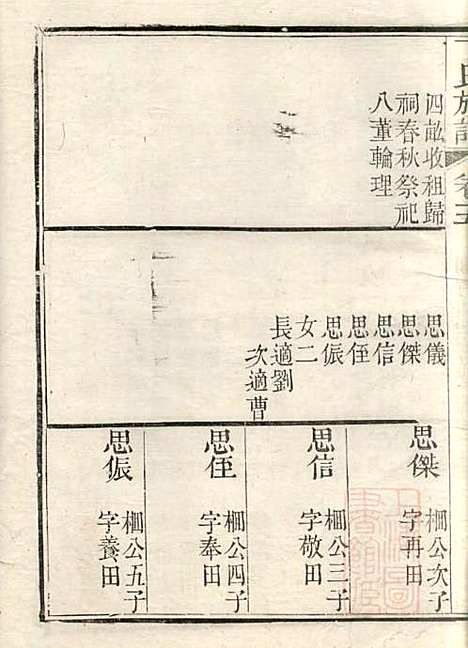 氏族譜
卷三
四畝收租歸
祠春秋祭祀
八董輪理
思儀
思傑
思信
思侄
思侲
女二
長適劉
次適曹
思傑
棚公次子
字再田
思信
棚公三子
字敬田
思侄
棚公四子
字奉田
思侲
棚公五子
字養田